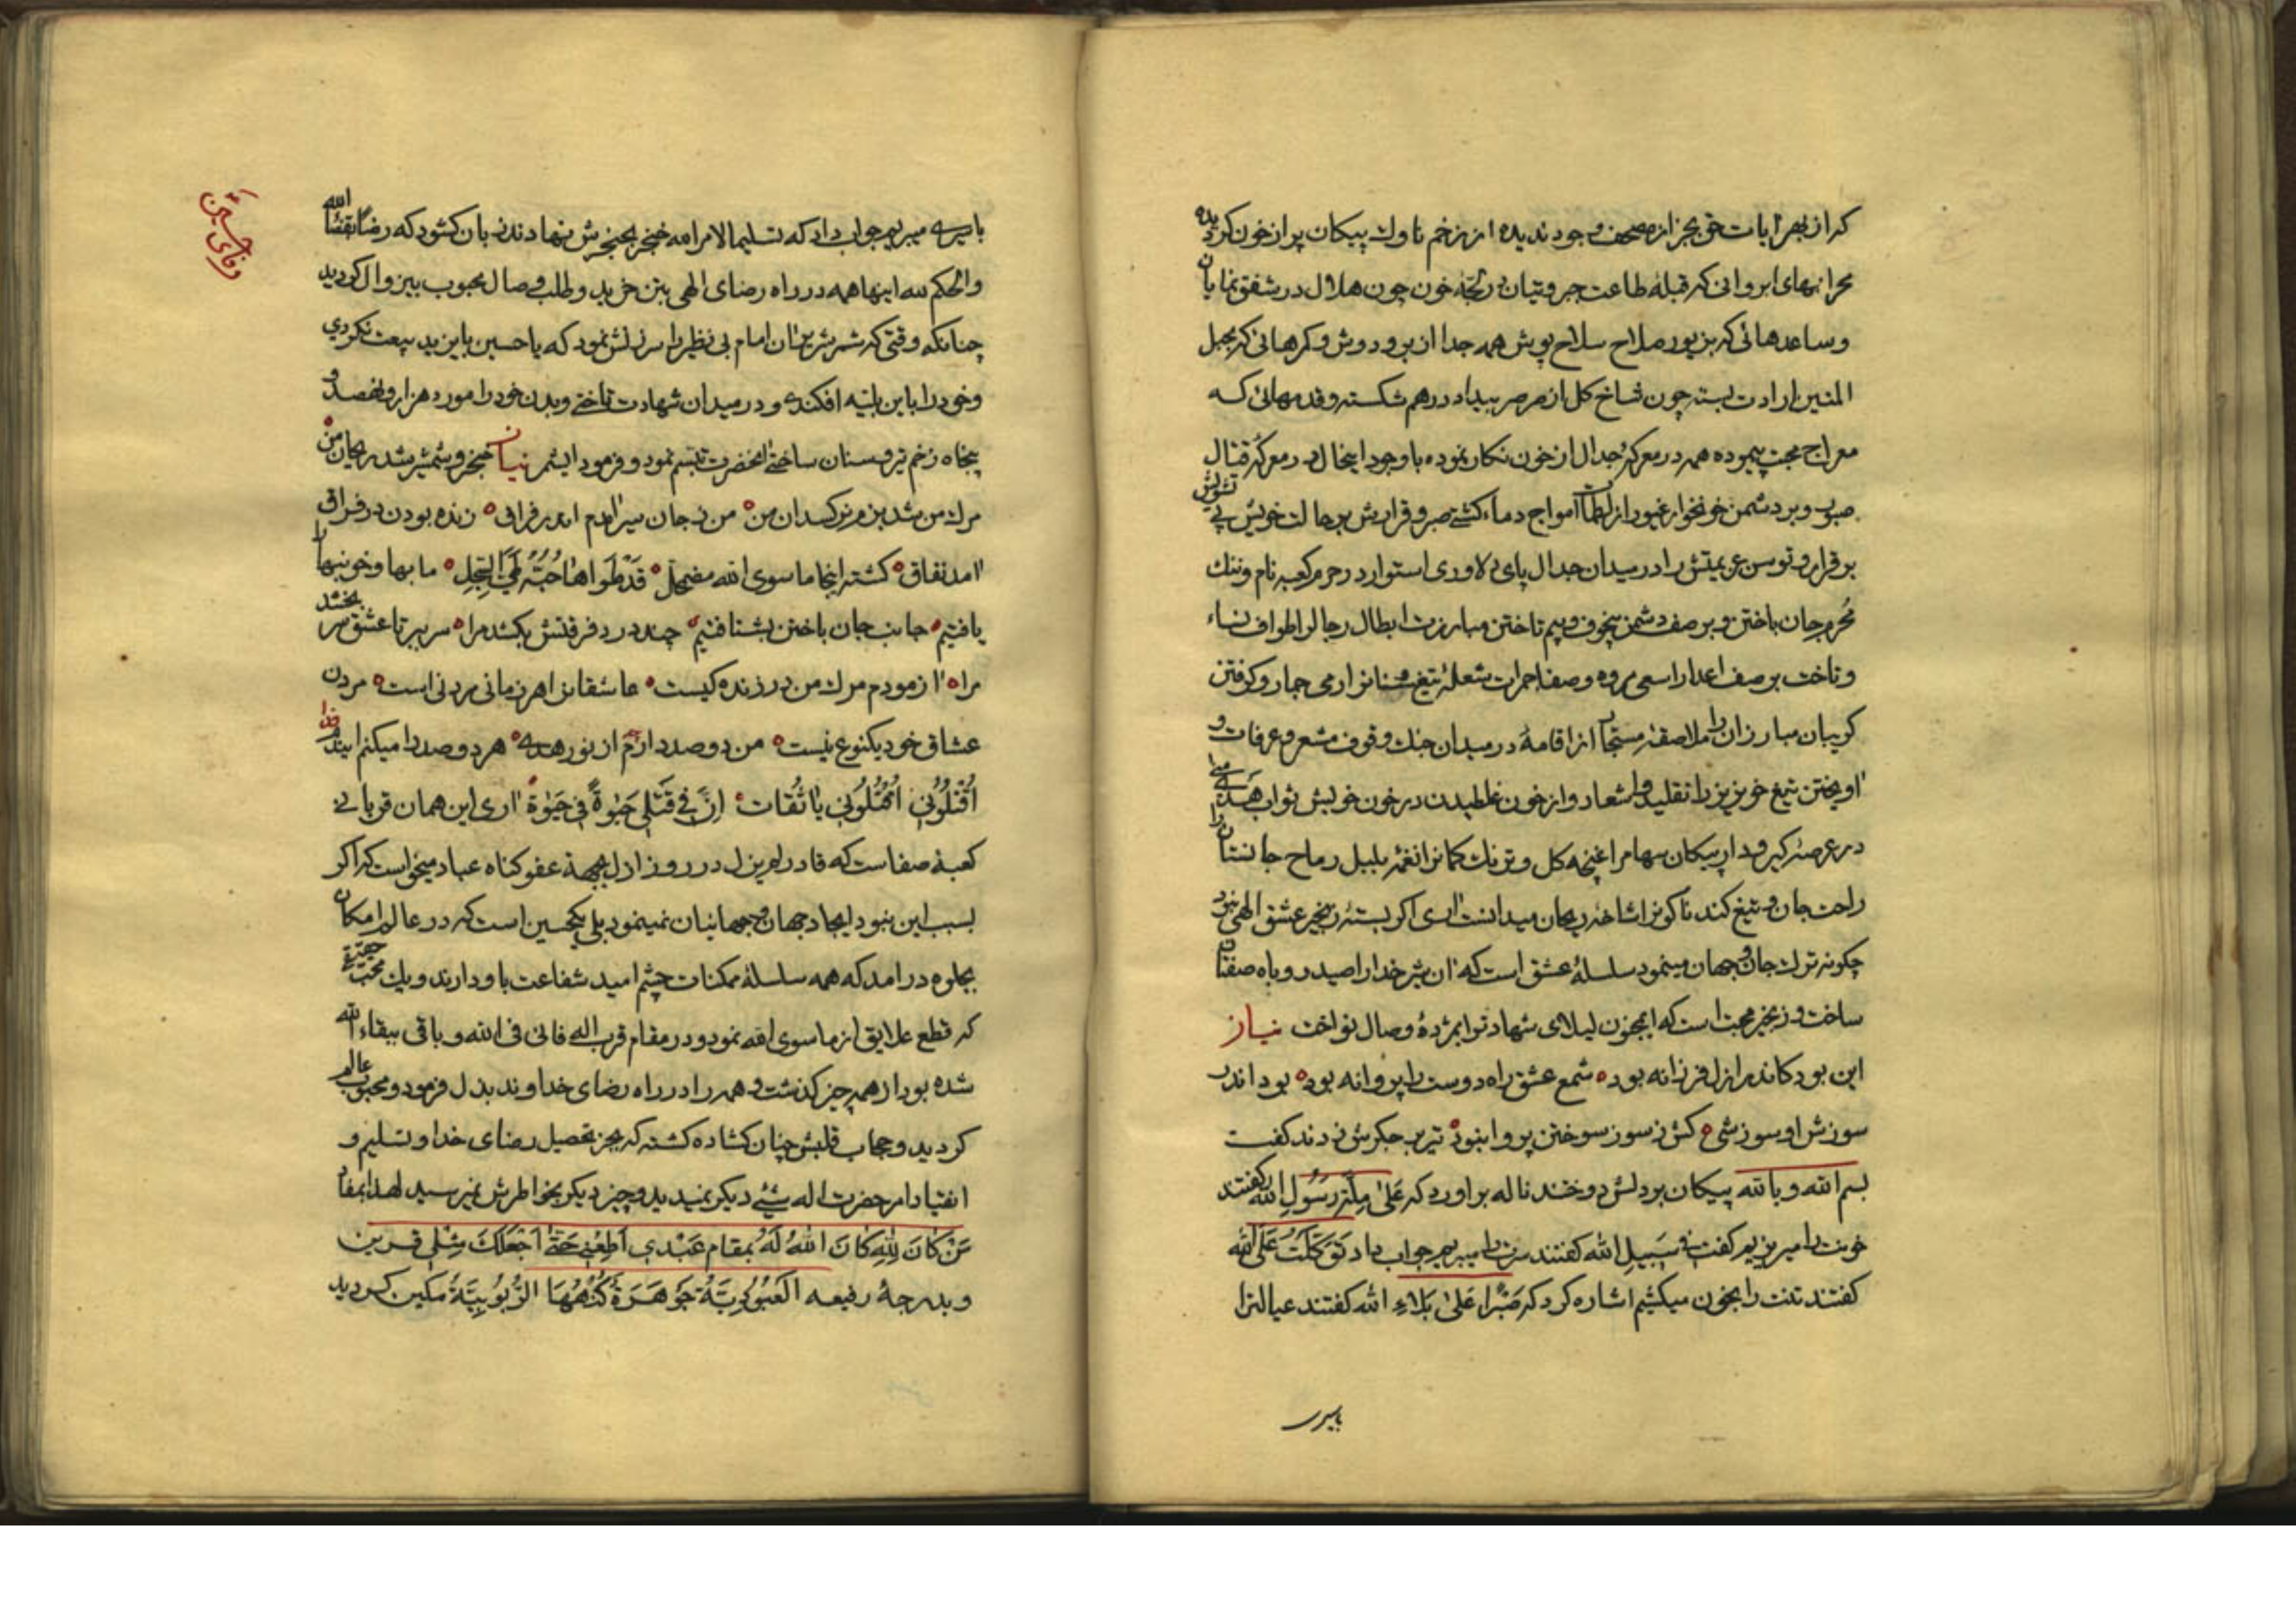 که از بهر ایات حق بجز از مصحف وجود ندیده از زخم ناوك پیکان پر از خون کردیده
محرابهای ابروانی که قبلهٔ طاعت جبروتیان خون چون هلال در شفق نمایان
و ساعدهائی که بزیور صلاح سلاح پوش همه جدا از بر و دوش و کمرهائی که بحبل
المتین ارادت بسته چون شاخ کل از صرصر بیداد درهم شکسته و قدمهائی که
معراج محبت پیموده همه در معرکهٔ جدال از خون نکار نموده با وجود اینحال در معرکهٔ قتال
صبور و بر دشمن خونخوار غیور از لطمات امواج دماء کشتی صبر و قرارش بر حالت خویش بی تشویش
برقرار و توسن عزیمتش را در میدان جدال پای دلاوری استوار در حرم کعبه نام و ننك
محرم جان باختن و بر صف دشمن بیخوف و بیم تاختن مبارزت ابطال رجال را طواف نساء
و تاخت بر صف اعدا را سعی مروه و صفا جمرات شعلهٔ تیغ و سنانرا رمی جمار و کرفتن
کریبان مبارزان را ملاصقهٔ مستجار از اقامهٔ در میدان جنك وقوف مشعر و عرفات و
اویختن تیغ خونریز را تقلید و اشعار و از خون غلطیدن در خون خویش ثواب هدی
در عرصه کیر و دار پیکان سهام را غنچه کل و ترنك کمانرا نغمهٔ بلبل رماح جانستان را
راحت جان و تیغ کند ناکونرا شاخهٔ ریحان میدانست اری اکر بستهٔ زنجیر عشق الهی نبود
چکونه ترك جان و جهان مینمود سلسلهٔ عشق است که ان شیر خدا را صید روباه صفتان
ساخت و زنجیر محبت است که ایمجنون لیلای شهادترا بمژدهٔ وصال نواخت نیاز
این بود کاندر ازل فرزانه بود شمع عشق راه دوست را پروانه بود بود اندر
سوزش او سوزشی کش ز سوز سوختن پروا نبود تیر بر جکرش زدند کفت
بسم الله و بالله پیکان بر دلش دوختند ناله براورد که عَلیٰ مِلَّةِ رَسُولِ الله کفتند
خونت را میریزیم کفت فی سَبیلِ الله کفتند سرت را میبریم جواب داد تَوَکَّلْتُ عَلَی الله
کفتند تنت را بخون میکشیم اشاره کرد که صَبْرًا عَلیٰ بَلاءِ الله کفتند عیالترا
باسیری
باسیری میبریم جواب داد که تسلیما لامر الله خنجر بحنجرش نهادند زبان کشود که رضًا بقضاء الله
والحکم لله اینها همه در راه رضای الهی بتن خرید و طلب وصال محبوب بیزوال کردید
چنانکه وقتی که شمر شریر ان امام بی نظیر را سرزنش نمود که یا حسین با یزید بیعت نکردی
و خود را باین بلیّه افکندی و در میدان شهادت تاختی و بدن خود را مورد هزار و نهصد و
پنجاه زخم تیر و سنان ساختی انحضرت تبسم نمود و فرمود ایشمر نیاز خنجر و شمشیر شد ریحان من
مرك من شد بزم و نرکسدان من من ز جان سیر امدم اندر فراق زنده بودن در فراق
امد نفاق کشته اینجا ما سوی الله مضمحل ما بها و خونبها را
یافتیم جانب جان باختن بشتافتیم چند درد فرقتش بکشد مرا سر ببر تا عشق سر بخشد
مرا ازمودم مرك من در زندکیست عاشقانرا هر زمانی مردنی است مردن
عشاق خود یکنوع نیست من دو صد دارم از نور هدی هر دو صد را میکنم ایندم فدا
اُقْتُلُونی اُقْتُلُونی یا ثُقات اِنَّ فی قَتْلی حَیٰوةً فی حَیٰوة اری این همان قربانی
کعبهٔ صفاست که قادر لم یزل در روز ازل بجهة عفو کناه عباد میخواست که اکر
بسبب این نبود ایجاد جهان و جهانیان نمینمود بلی یکحسین است که در عالم امکان
بجلوه در امد که همه سلسلهٔ ممکنات چشم امید شفاعت باو دارند و یك محب حقیقی
که قطع علایق از ما سوی الله نمود و در مقام قرب اله فانی فی الله و باقی ببقاء الله
شده بود از همه چیز کذشت و همه را در راه رضای خداوند بذل فرمود و محبوب عالم
کردید و حجاب قلبش چنان کشاده کشته که بجز تحصیل رضای خدا و تسلیم و
انقیاد امر حضرت اله شیئی دیکر نمیدید و چیز دیکر بخواطرش نمیرسید لهذا بمفاد
مَنْ کانَ لِلّٰهِ کانَ اللهُ لَهُ بمقام عَبْدی اَطِعْنی حَتّٰی اَجْعَلَكَ مِثْلی قرین
و بدرجهٔ رفیعه اَلْعُبُودِیَّةُ جَوْهَرَةٌ کُنْهُهَا الرُّبُوبِیَّةُ مکین کردید
وفای حسین